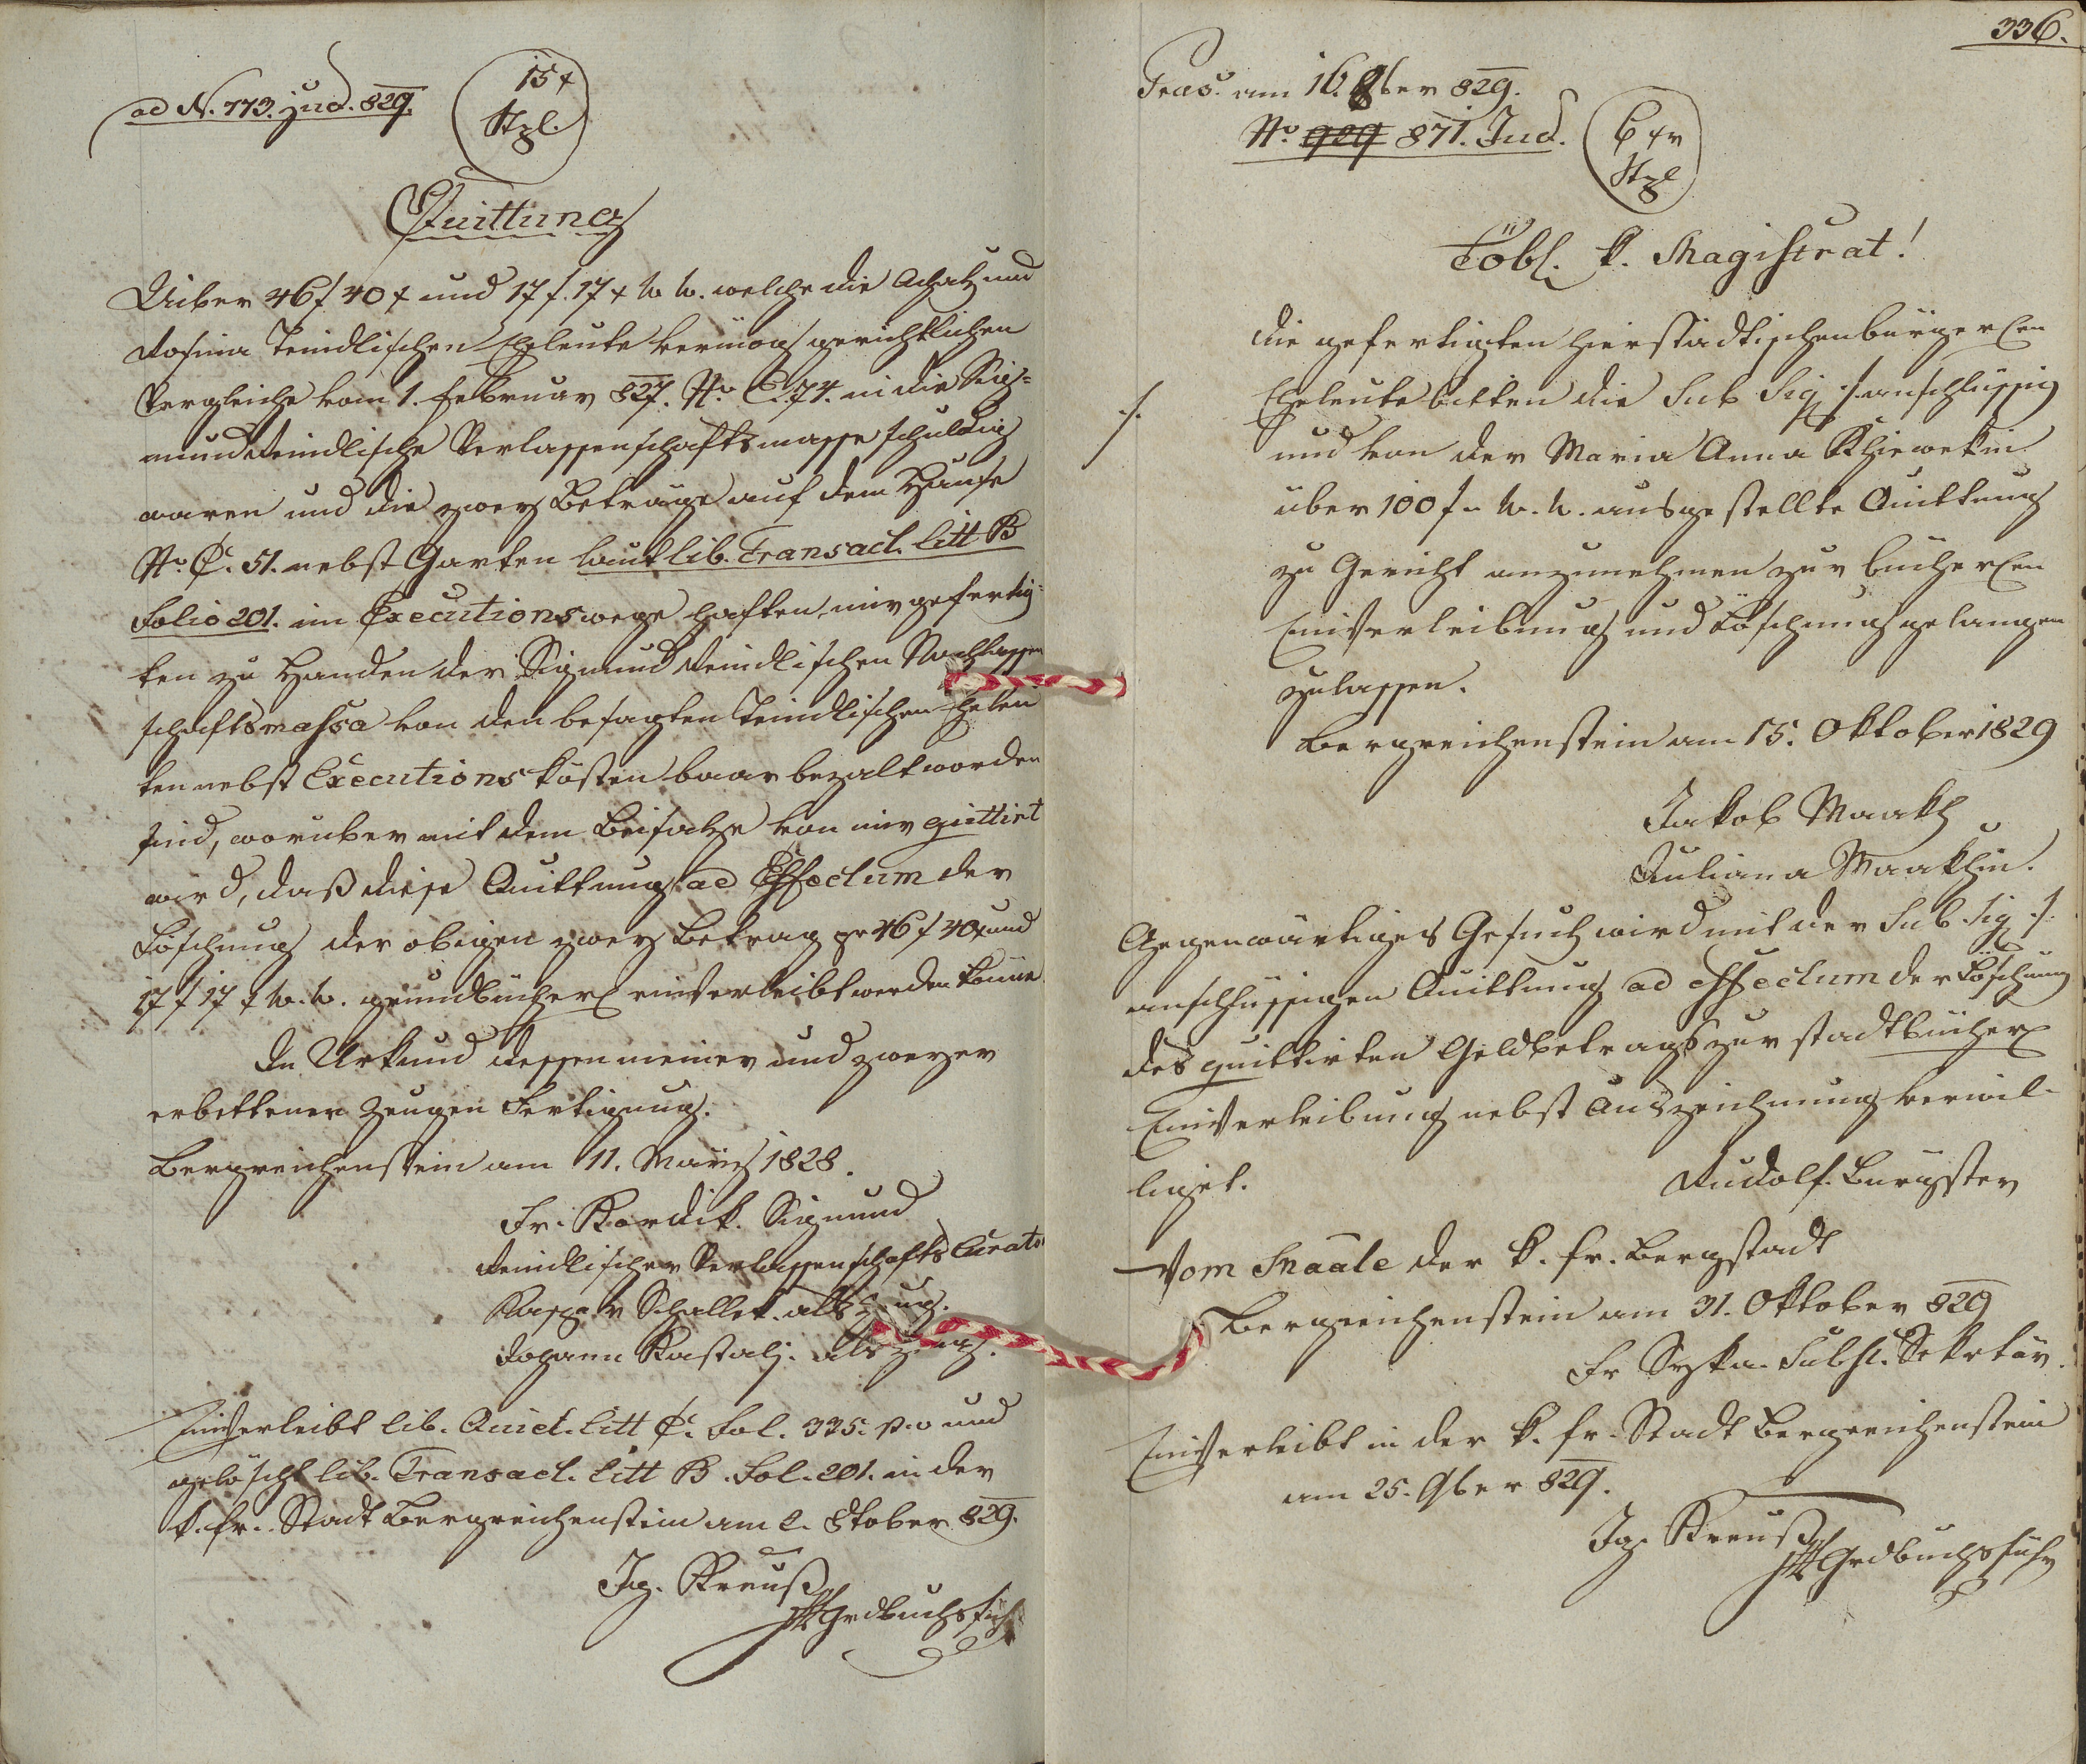 ad N. 773. jud. 829.
15 x
Stpl.
Quittung
Uiber 46 f 40 x und 17 f. 17 x W. W. welche die Achatz und
Rosina Teindlischen Eheleute vermög gerichtlichen
Vergleiche vom 1. Februar 827. No. C. 74. in die Sig=
mund Teindlische Verlassenschaftsmasse schuldig
waren und die zwey Beträge auf dem Hause
No. C. 51. nebst Garten laut lib. Transact. litt B
Folio 201. im Executionswege haften, mir gefertig=
ten zu Handen der Sigmund Teindlischen Nachlassen
schaftsmassa von den besagten Teindlischen Eheleu
ten nebst Executionskösten baar bezalt worden
sind, worüber mit dem Beisatze von mir quittirt
wird, daß diese Quittung ad Effectum der
Löschung der obigen zwey Betrag pr 46 f 40 x und
17 f 17 x W. W. grundbücherl einverleibt werden könne.
In Urkund dessen meiner und zweyer
erbettener Zeugen Fertigung.
Bergreichenstein am 11. März 1828.
Fr. Kordik. Sigmund
Teindlischer Verlassenschafts Curator
Kaspar Schallek. als Zeug.
Johann Kastaly. als Zeug.
Einverleibt lib. Quiet. litt C. Fol. 335. p. v und
gelöscht lib. Transact. litt B. Fol. 201. in der
k. fr. Stadt Bergreichenstein am 2. 8tober 829.
Ig. Kreuß
Grdbuchsfüh
336.
Praes. am 16. 8ber 829.
No. 929 871. Jud.
6 xr
Stpl
Löbl. k. Magistrat!
Die gefertigten hierstädtischen bürgerlen
Eheleute bitten die Sub Sig ./. anschlüssig
./.
und von der Maria Anna
über 100 f W. W. ausgestellte Quittung
zu Gericht anzunehmen zur bücherlen
Einverleibung und Löschung gelangen
zulassen.
Bergreichenstein am 15. Oktober 1829
Jakob Maakh
Juliana Maakhin.
Gegenwärtiges Gesuch wird mit der Sub. Sig ./.
anschlüssigen Quittung ad effectum der Löschung
des quittirten Geldbetrags zur stadtbücherl
Einverleibung nebst Auszeichnung verwil=
liget.
Rudolf. Burgster
Vom Raate der k. fr. Bergstadt
Bergreichenstein am 31. Oktober 829
Fr Syka. Subst. Sekretär.
Einverleibt in der k. fr. Stadt Bergreichenstein
am 25. 9ber 829.
Ig. Kreuß
Grdbuchsführ